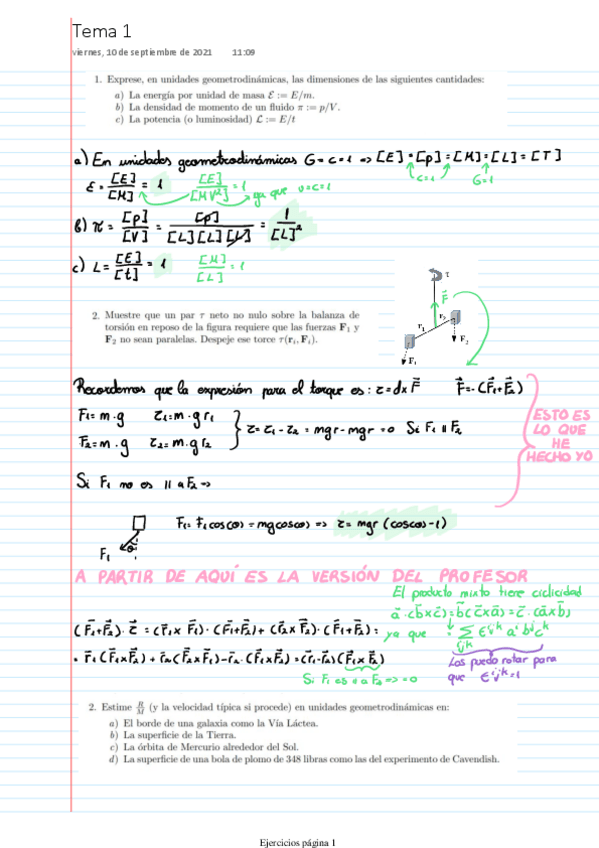 Tema 1
viernes, 10 de septiembre de 2021 11:09
1. Exprese, en unidades geometrodinámicas, las dimensiones de las siguientes cantidades:
a) La energía por unidad de masa ℰ := E/m.
b) La densidad de momento de un fluido π := p/V.
c) La potencia (o luminosidad) ℒ := E/t
a) En unidades geometrodinámicas G=c=1 => [E]=[p]=[M]=[L]=[T]
c=1 G=1
ε = [E]/[M] = 1 [E]/[MV²] = 1 ya que v=c=1
b) π = [p]/[V] = [p]/[L][L][L] = 1/[L]²
c) L = [E]/[t] = 1 [M]/[L] = 1
2. Muestre que un par τ neto no nulo sobre la balanza de
torsión en reposo de la figura requiere que las fuerzas F₁ y
F₂ no sean paralelas. Despeje ese torce τ(rᵢ, Fᵢ).
τ
F
r₂
r₁
F₂
F₁
Recordemos que la expresión para el torque es: τ = d x F F = -(F₁+F₂)
F₁ = m·g τ₁ = m·g r₁
F₂ = m·g τ₂ = m·g r₂
τ = τ₁ - τ₂ = mgr - mgr = 0 Si F₁ || F₂
ESTO ES
LO QUE
HE
HECHO YO
Si F₁ no es || a F₂ =>
F₁ = F₁cos(α) = mgcos(α) => τ = mgr (cos(α)-1)
F₁
A PARTIR DE AQUÍ ES LA VERSIÓN DEL PROFESOR
El producto mixto tiene ciclicidad
a·(b×c) = b(c×a) = c·(a×b)
(F₁+F₂)·τ = (r₁×F₁)·(F₁+F₂) + (r₂×F₂)·(F₁+F₂) = ya que Σ ε^ijk a^i b^j c^k
ijk
= r₁(F₁×F₂) + r₂(F₂×F₁) - r₂·(F₁×F₂) = (r₁-r₂)(F₁×F₂)
Los puedo rotar para
que ε^ijk = 1
Si F₁ es α a F₂ => = 0
2. Estime R/M (y la velocidad típica si procede) en unidades geometrodinámicas en:
a) El borde de una galaxia como la Vía Láctea.
b) La superficie de la Tierra.
c) La órbita de Mercurio alrededor del Sol.
d) La superficie de una bola de plomo de 348 libras como las del experimento de Cavendish.
Ejercicios página 1